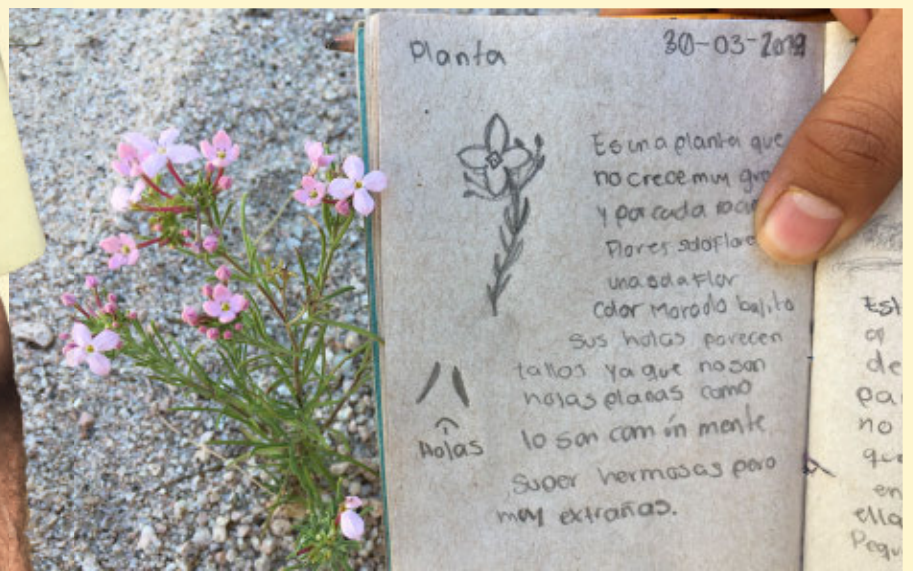 Planta
30-03-2019
Es una planta que
no crece muy
y por cada
Flores solo
una sola Flor
Color Morado bajito
sus holas parecen
tallos ya que no son
holas planas como
lo son com ún mente
super hermosas pero
muy extrañas.
Holas
Est
a
de
pa
no
qu
en
ella
Pequ